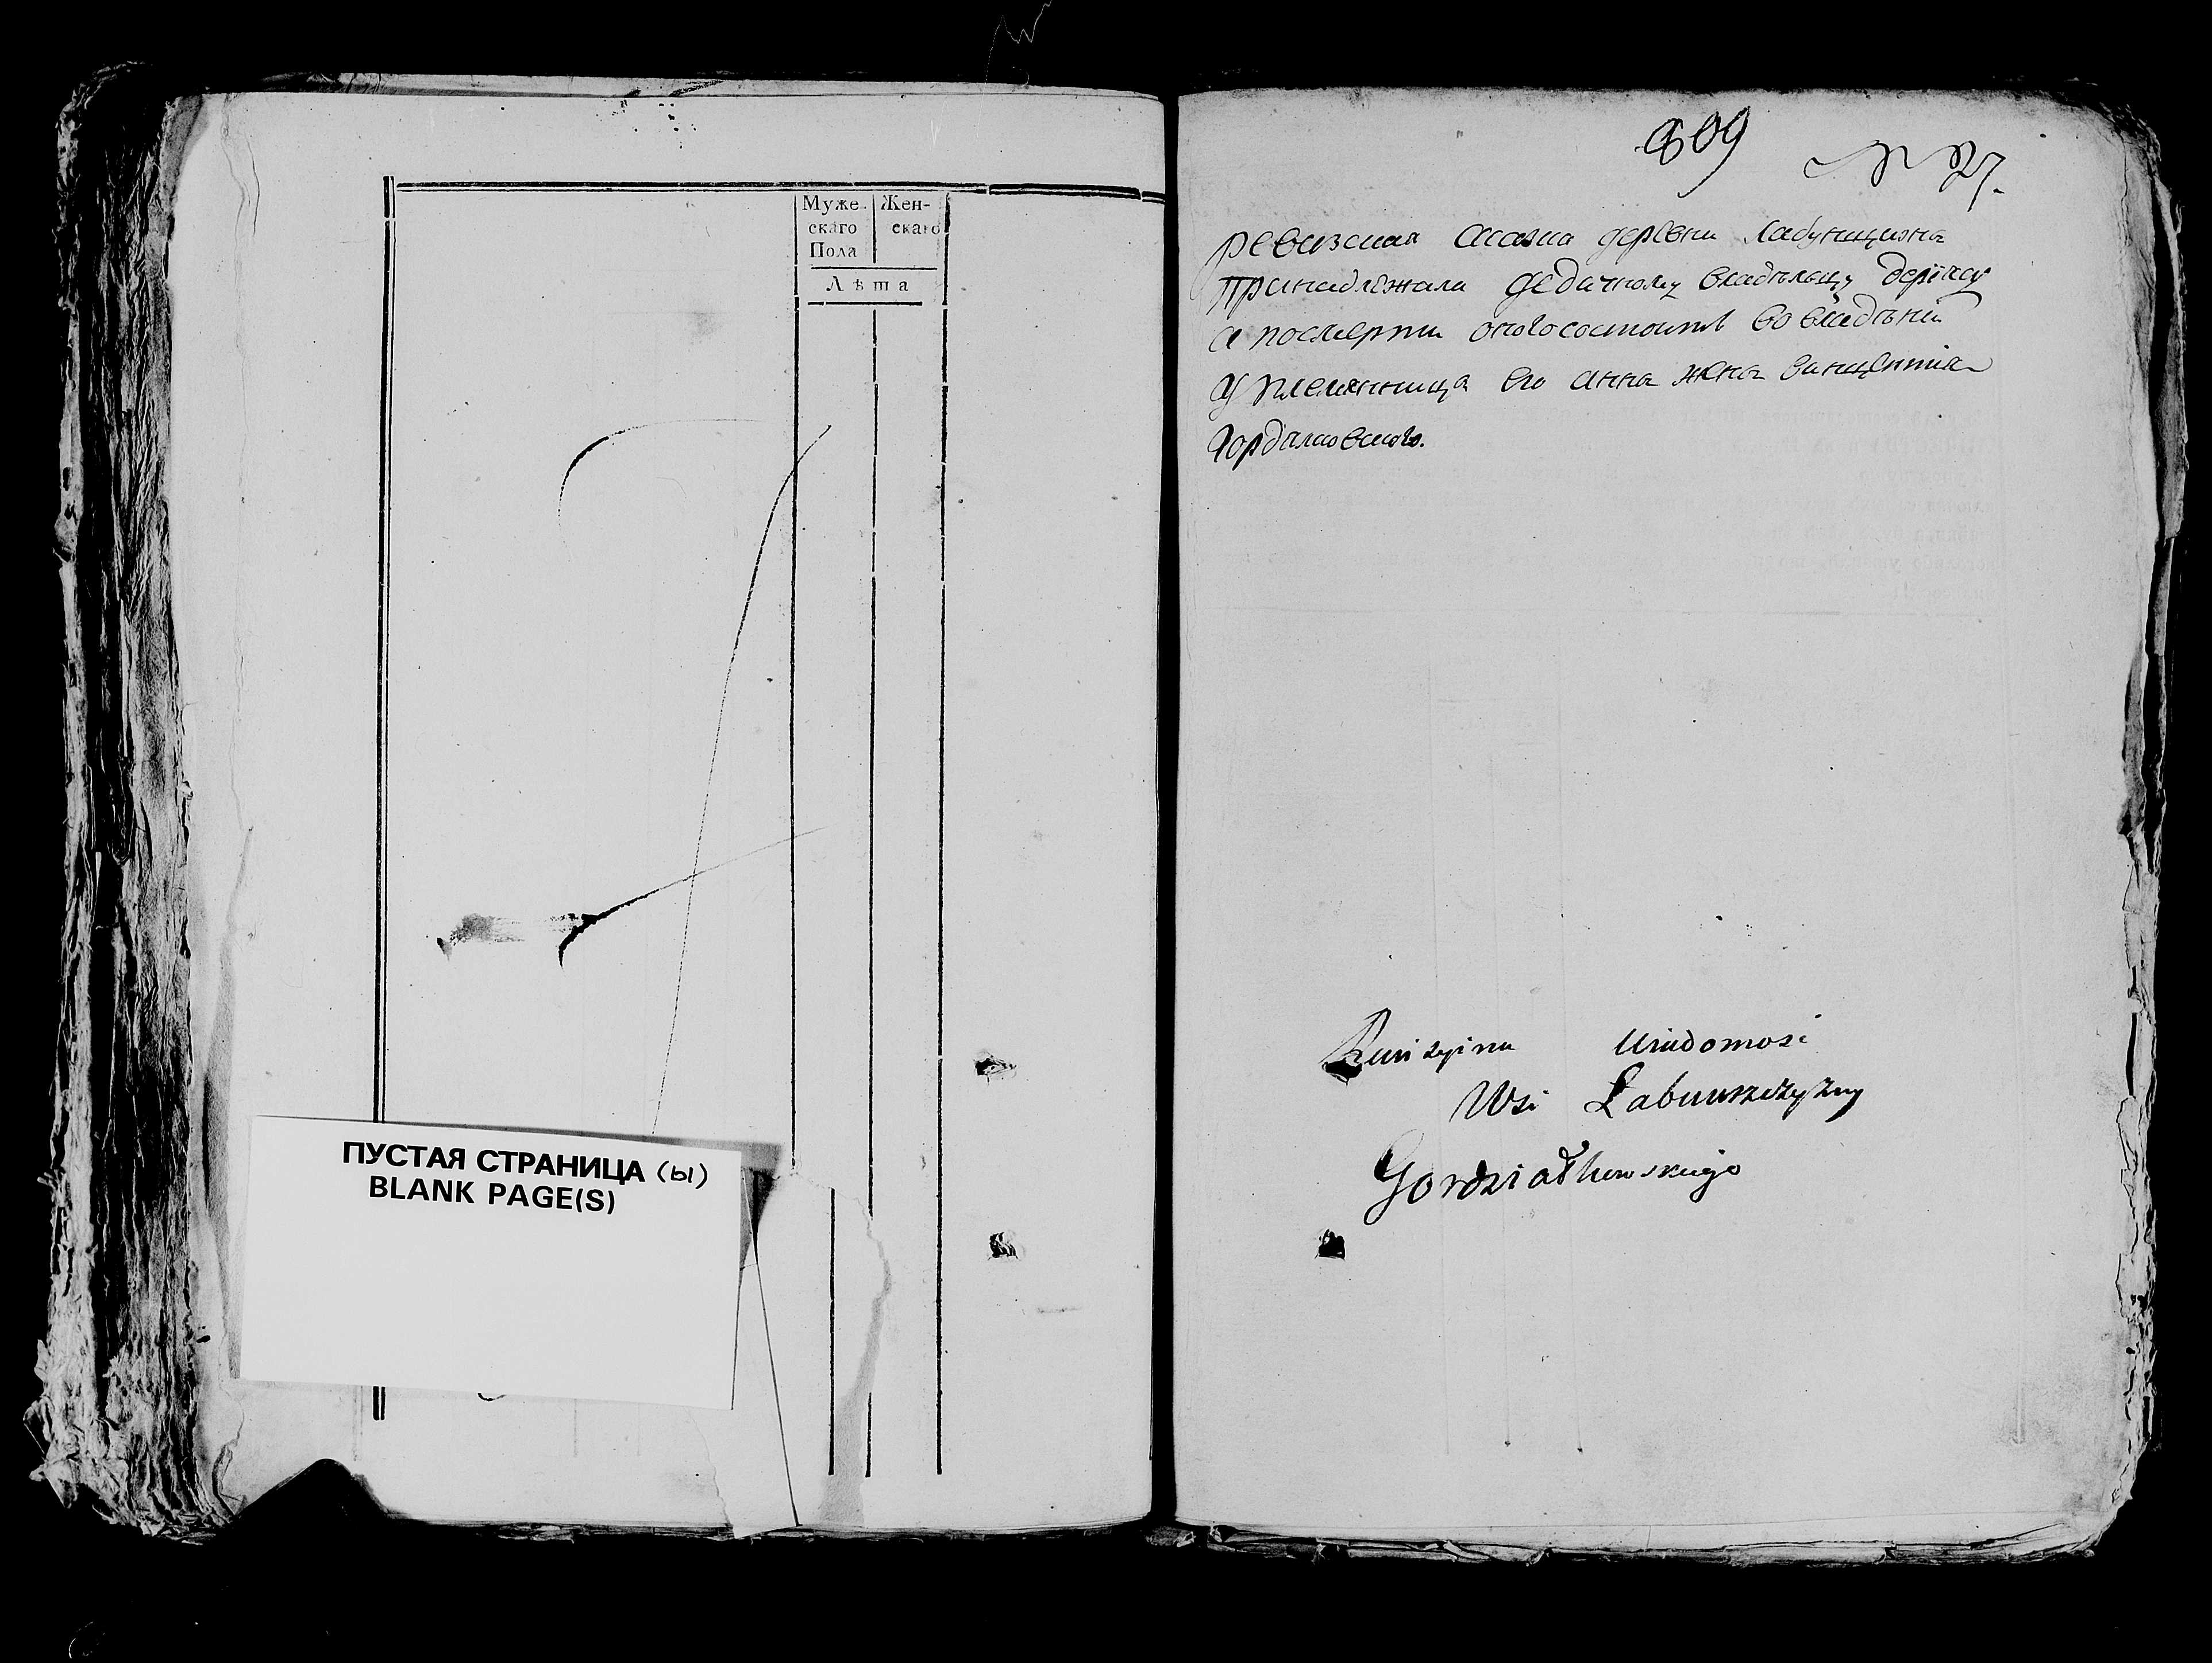 Муже- Жен-
скаго скаго
Пола
Лѣта
ПУСТАЯ СТРАНИЦА (Ы)
BLANK PAGE(S)
609
ревизская сказка деревни Лабунщизна
принадлежала дедичному владѣльцу
а посмерти оногосостоитъ во владѣнии
у племянница его анна жена винцентія
Гордзялковскаго.
Rewizyina Wiadomość
Wsi Łabunszczyzny
Gordziałkowskiego